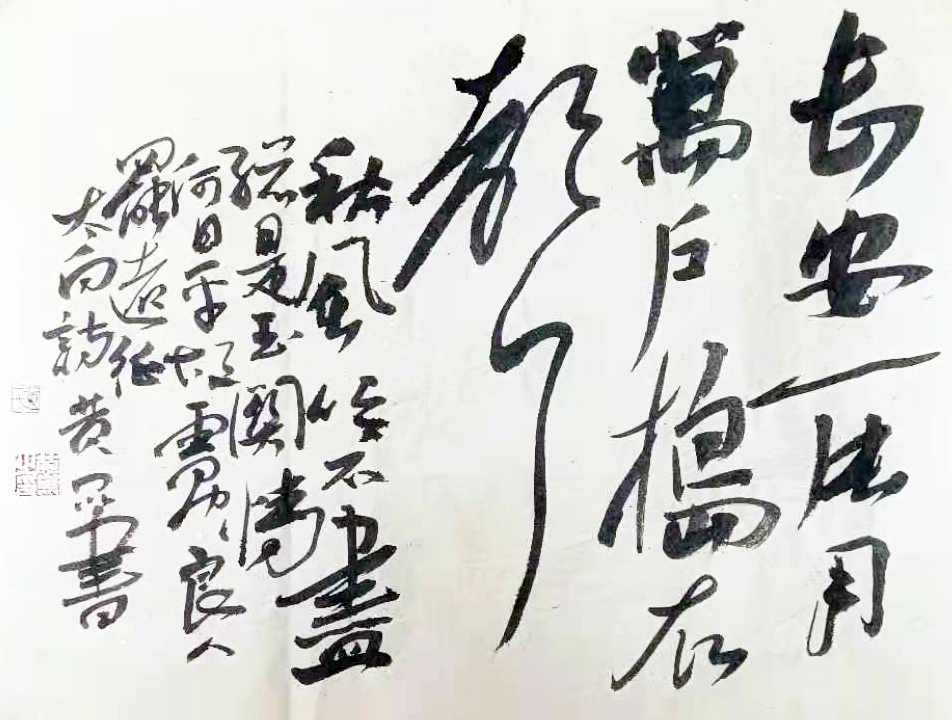 长安一片月
萬户搗衣
聲
秋風吹不盡
總是玉關情
何日平胡虜良人
罷遠征
太白詩黄書